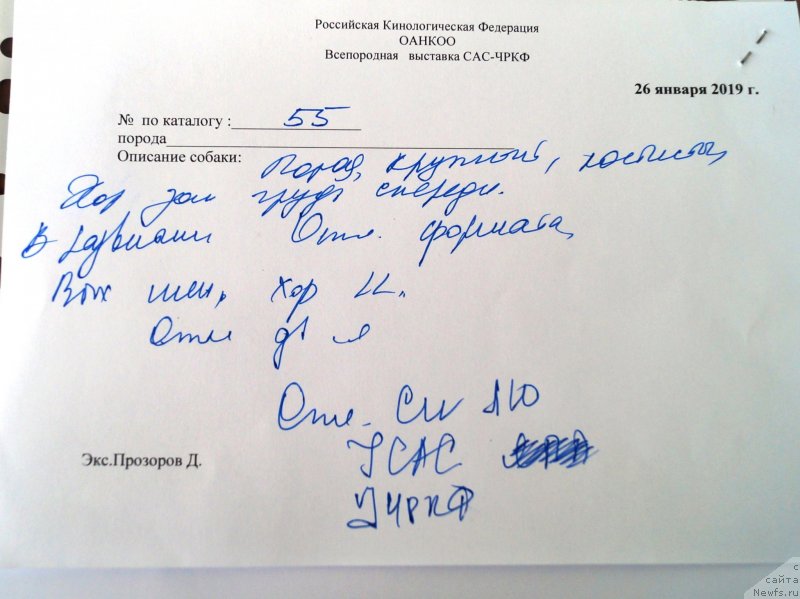 Российская Кинологическая Федерация
ОАНКОО
Всепородная выставка САС-ЧРКФ
26 января 2019 г.
№ по каталогу : 55
порода
Описание собаки: Пород, крупный, костистый,
Хор зап грудь спереди.
В развитии Отл. формата,
Выс шея, хор
Отл дв я
Отл. СW ЛЮ
JCAC
Экс.Прозоров Д.
JЧРКФ
с сайта
Newfs.ru